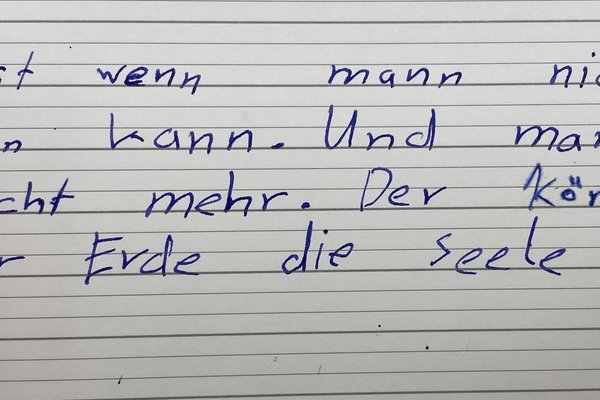 st wenn mann nic
n kann. Und man
cht mehr. Der Kör
r Erde die seele